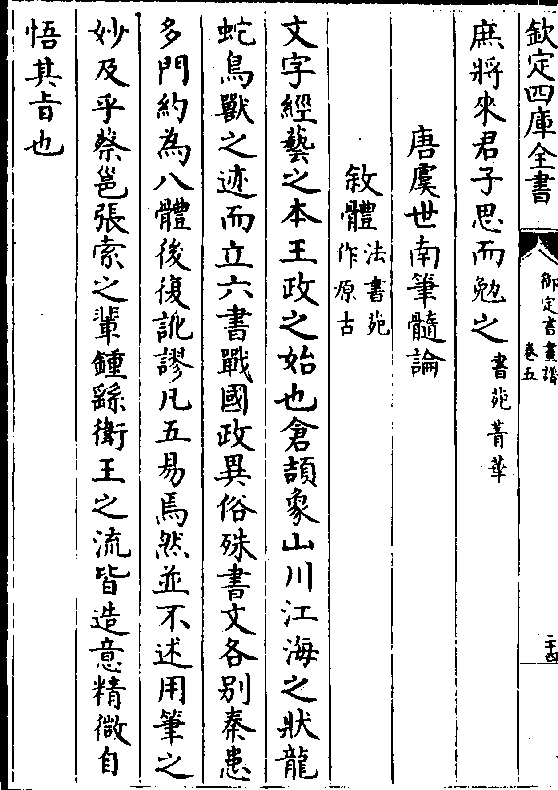 欽定四庫全書
御定書畫譜
卷五
二十四
庶將來君子思而勉之書苑菁華
唐虞世南筆髓論
敘體法書苑
作原古
文字經藝之本王政之始也倉頡象山川江海之狀龍
蛇鳥獸之迹而立六書戰國政異俗殊書文各别秦患
多門約為八體後復訛謬凡五易焉然並不述用筆之
妙及乎蔡邕張索之輩鍾繇衛王之流皆造意精微自
悟其旨也